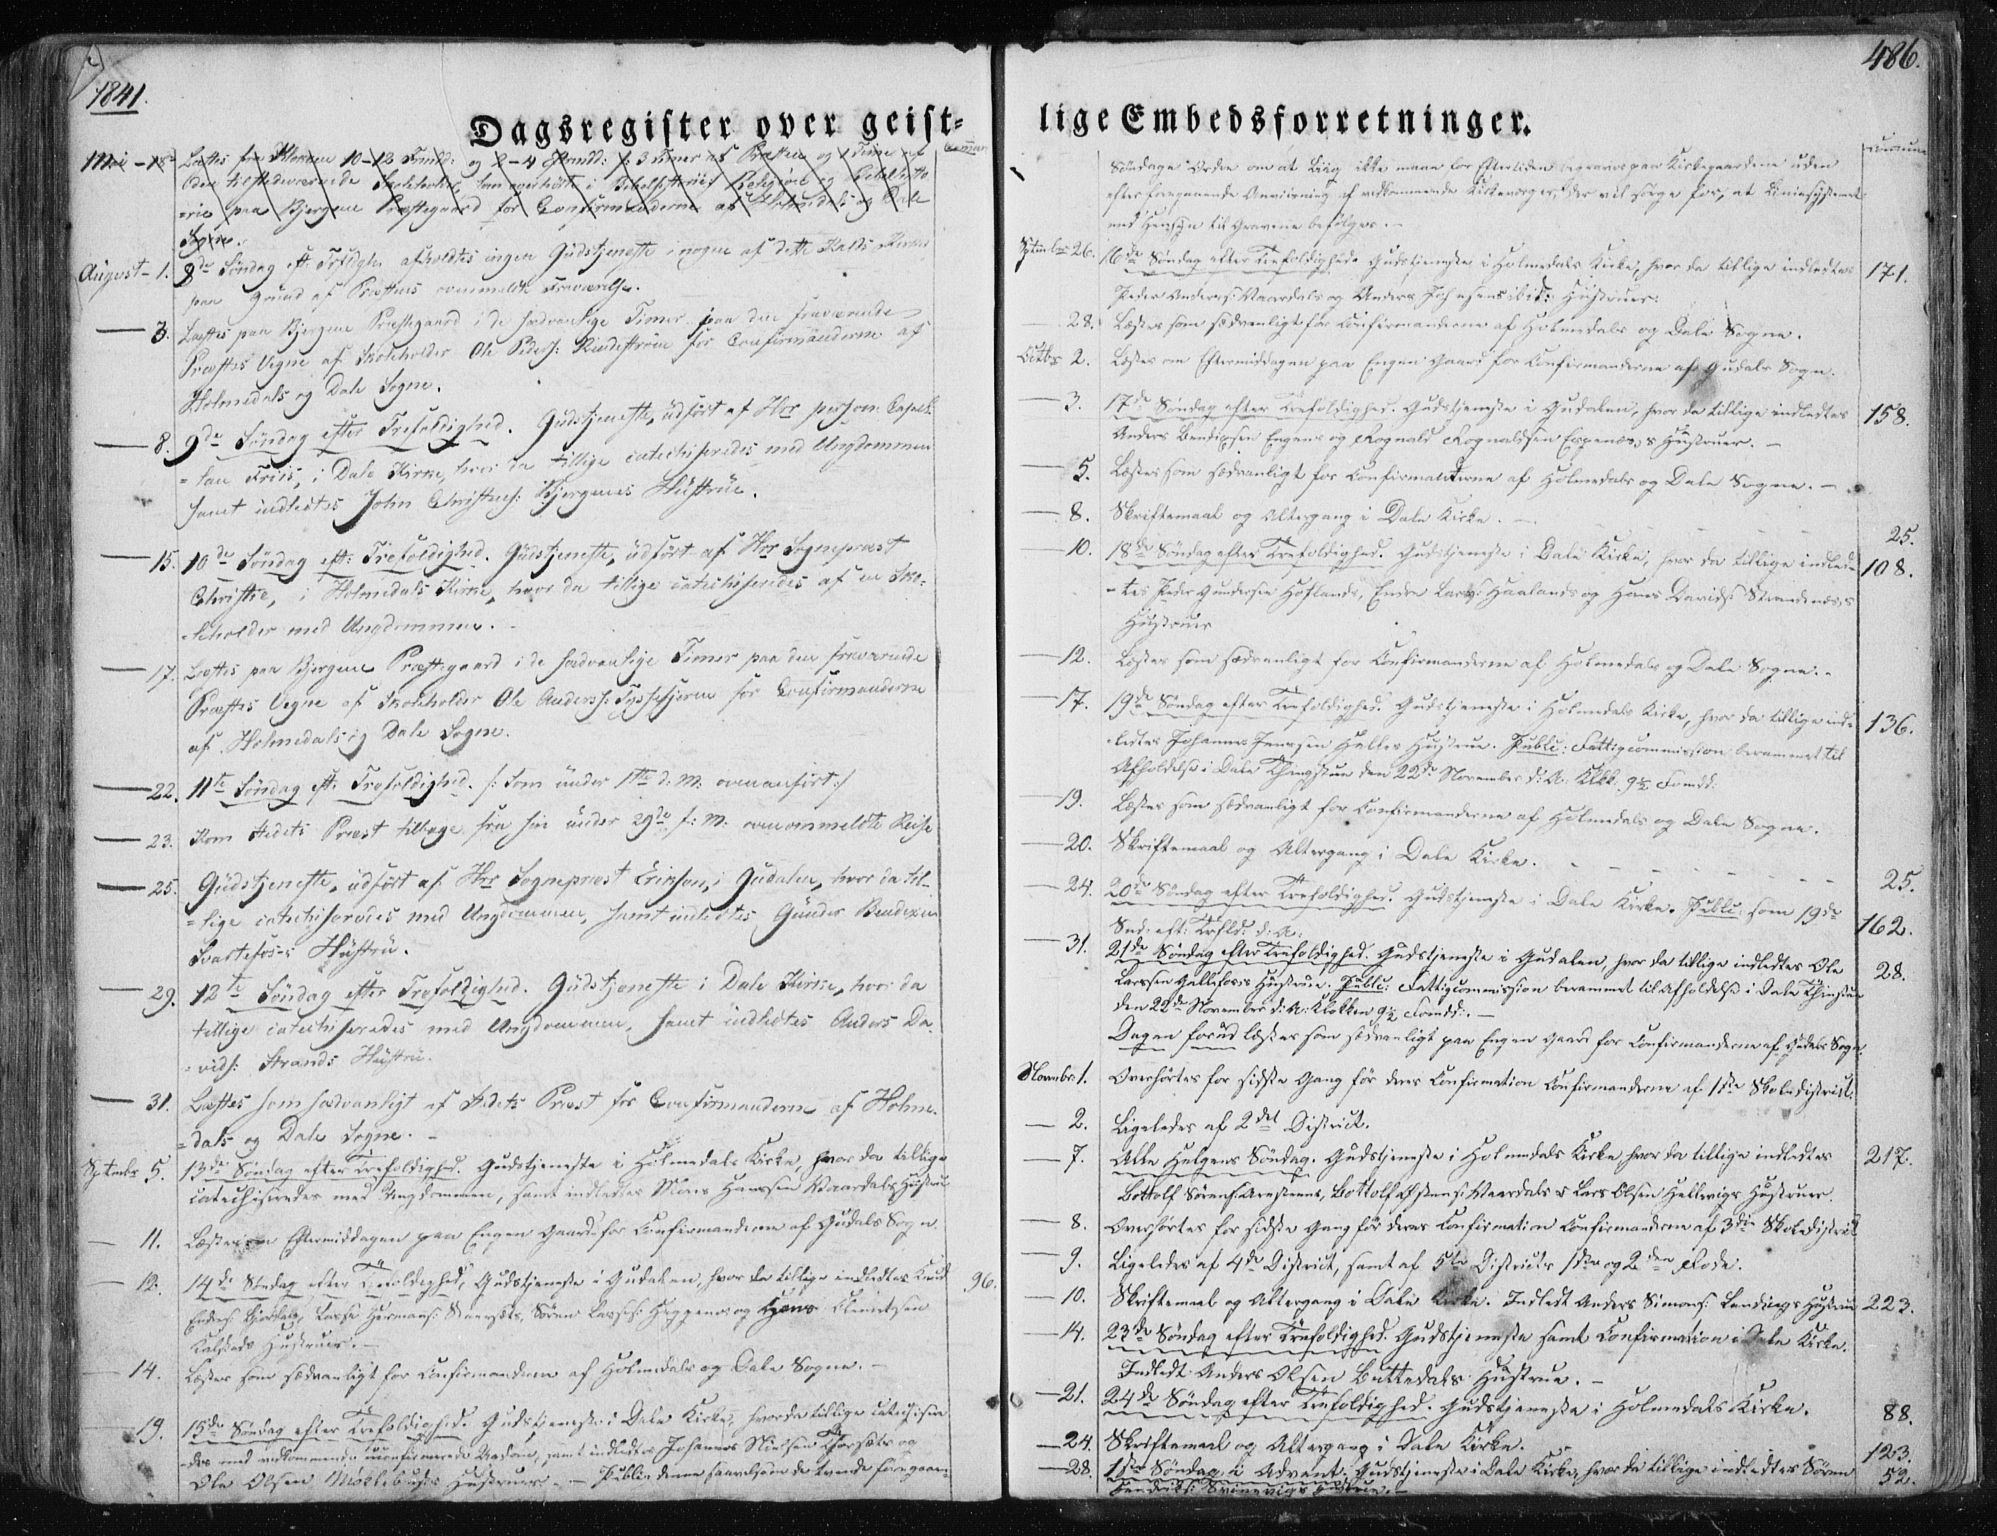 1841.
486.
Dagsregister over geist=
lige Embedsforretninger.
Mai – 18
Præstens Vegne
August – 1. 8de Søndag eft: Trfldgh. afholdtes ingen Gudstjeneste i nogen af dette Kalds Kirker
paa Grund af Præstens ovenmeldte Fraværelse.
— 3. Læstes paa Bjergene Præstegaard i de sædvanlige Timer paa den fraværende
Præstes Vegne af Skoleholder Ole Peders: for Confirmanderne af
Holmedals og Dale Sogne.
— 8. 9de Søndag efter Trefoldighed. Gudstjeneste, udført af Hrr person: Capel=
=lan Friis, i Dale Kirke, hvor da tillige catechiseredes med Ungdommen
samt indledtes John Christens: Bjergenes Hustrue.
— 15. 10de Søndag eft: Trefoldighed. Gudstjeneste, udført af Hrr Sognepræst
Christie, i Holmedals Kirke, hvor da tillige catechiseredes af en Sko=
=leholder med Ungdommen.
— 17. Læstes paa Bjergene Præstegaard i de sædvanlige Timer paa den fraværende
Præstes Vegne af Skoleholder Ole Anders: for Confirmanderne
af Holmedals og Dale Sogne.
— 22. 11te Søndag eft: Trefoldighed. /: Som under 1ste d: M: ovenanført :/
— 23. Kom Stedets Præst tilbage fra sin under 29de f: M: ovenommeldte Reise
— 25. Gudstjeneste, udført af Hrr Sognepræst Erikson, i Gudalen, hvor da til=
=lige catechiseredes med Ungdommen, samt indledtes Gunder Bendixen
Svartefoss's Hustru.
— 29. 12te Søndag efter Trefoldighed. Gudstjeneste i Dale Kirke, hvor da
tillige catechiseredes med Ungdommen, samt indledtes Anders Da=
=vids: Strands Hustru.
— 31. Læstes som sædvanligt af Stedets Præst for Confirmanderne af Holme=
=dals og Dale Sogne. –
Septembr 5. 13de Søndag efter Trefoldighed. Gudstjeneste i Holmedals Kirke, hvor da tillige
catechiseredes med Ungdommen, samt indledtes Mons Hanssen Vaardals Hustrue
— 11. Læstes om Eftermiddagen paa Engen Gaard for Confirmanderne af Gudals Sogn.
— 12. 14de Søndag efter Trefoldighed, Gudstjeneste i Gudalen, hvor da tillige indledtes 96.
Hustruer. –
— 14. Læstes som sædvanligt for Confirmanderne af Holmedals og Dale Sogne. –
— 19. 15de Søndag efter Trefoldighed. Gudstjeneste i Dale Kirke, hvor da tillige catechisere=
=des med vedkommende uconfirmerede Ungdom, samt indledtes Johannes Nielsen og
Ole Olsen Hustruer. – Publ: denne saavelsom de tvende foregaaen=
Søndage Orden om at Liig ikke maae for Eftertiden begraves paa Kirkegaardene uden
efter foregaaende Anviisning af vedkommende Kirkeværger, der vil sørge for, at Liniesystemet
med Hensyn til Gravene befølges. –
Septembr 26. 16de Søndag efter Trefoldighed. Gudstjeneste i Holmedals Kirke, hvor da tillige indledtes 171.
Peder Anders: Vaardals og Anders Johnsens ibid: Hustruer.
— 28. Læstes som sædvanligt for Confirmanderne af Holmedals og Dale Sogne.
Octbr 2. Læstes om Eftermiddagen paa Engen Gaard for Confirmanderne af Gudals Sogn.
— 3. 17de Søndag efter Trefoldighed. Gudstjeneste i Gudalen, hvor da tillige indledtes 158.
Anders Bendixsen Engens og Rognald Rognaldsen Espenæs's Hustruer. –
— 5. Læstes som sædvanligt for Confirmanterne af Holmedals og Dale Sogne. –
— 8. Skriftemaal og Altergang i Dale Kirke. 25.
— 10. 18de Søndag efter Trefoldighed. Gudstjeneste i Dale Kirke, hvor da tillige indled= 108.
=tes Peder Gundersen Høflands, Endre Lars: Haalands og Hans Davids: Strandenæs's
Hustruer
— 12. Læstes som sædvanligt for Confirmanderne af Holmedals og Dale Sogne. –
— 17. 19de Søndag efter Trefoldighed. Gudstjeneste i Holmedals Kirke, hvor da tillige ind= 136.
=ledtes Johannes Jenssen Helles Hustrue. Public: Fattigcommission berammet til
Afholdelse i Dale Thingstue den 22de November d: A: Klkk. 9½ Formdd:
— 19. Læstes som sædvanligt for Confirmanderne af Holmedals og Dale Sogne.
— 20. Skriftemaal og Altergang i Dale Kirke. 25.
— 24. 20de Søndag efter Trefoldighed. Gudstjeneste i Dale Kirke. Publ: som 19de 162.
Snd: eft: Trfld: d: A:
— 31. 21de Søndag efter Trefoldighed. Gudstjeneste i Gudalen, hvor da tillige indledtes Ole 28.
Larssen Gallefoss's Hustrue. Public: Fattigcommission berammet til Afholdelse i Dale Thinstue
den 22de November d: A: Klokken 9½ Formdd:. –
Dagen forud læstes som sædvanligt paa Engen Gaard for Confirmanderne af Gudals Sogn.
Novembr 1. Overhørtes for sidste Gang før deres Confirmation Confirmanderne af 1ste Skoledistrict:
— 2. Ligeledes af 2det District.
— 7. Alle Helgens Søndag. Gudstjeneste i Holmedals Kirke hvor da tillige indledtes 217.
Bottolf Sørens: Bottolf Vaardals & Lars Olsen Hellevigs Hustruer.
— 8. Overhørtes for sidste Gang før deres Confirmation Confirmanderne af 3die Skoledistrict
— 9. Ligeledes af 4de District, samt af 5te Districts 1ste og 2den Rode.
— 10. Skriftemaal og Altergang i Dale Kirke. Indledt Anders Simons: Hustrue 223.
— 14. 23de Søndag efter Trefoldighed. Gudstjeneste samt Confirmation i Dale Kirke.
Indledt: Anders Olsen Buttedals Hustrue. –
— 21. 24de Søndag efter Trefoldighed. Gudstjeneste i Holmedals Kirke. 88.
— 24. Skriftemaal og Altergang i Dale Kirke. 123.
— 28. 1ste Søndag i Advent. Gudstjeneste i Dale Kirke, hvor da tillige indledtes Søren 52.
Hustrue. –